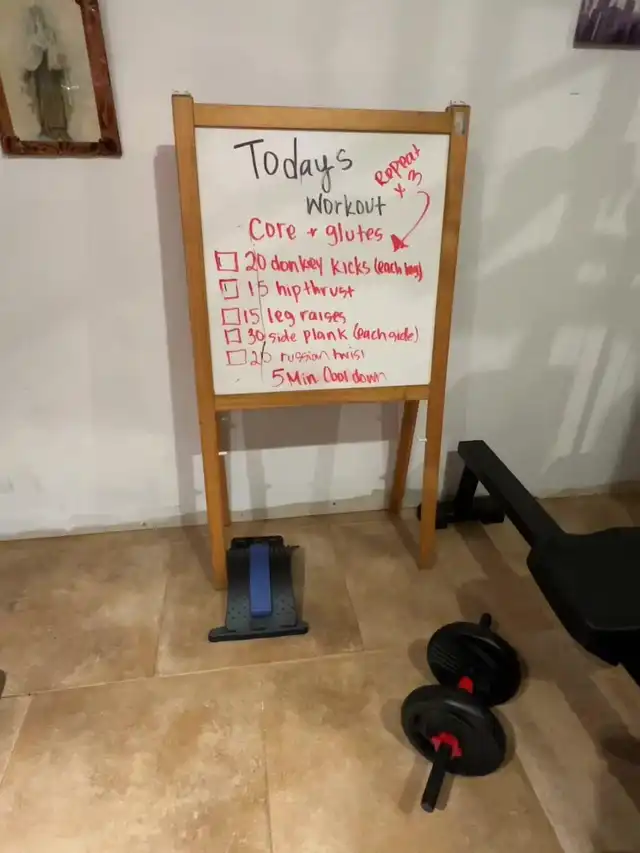 Todays
workout
Repeat
x 3
Core + glutes
20 donkey kicks (each leg)
15 hip thrust
15 leg raises
30 side plank (each side)
20 russian twist
5 Min Cool down